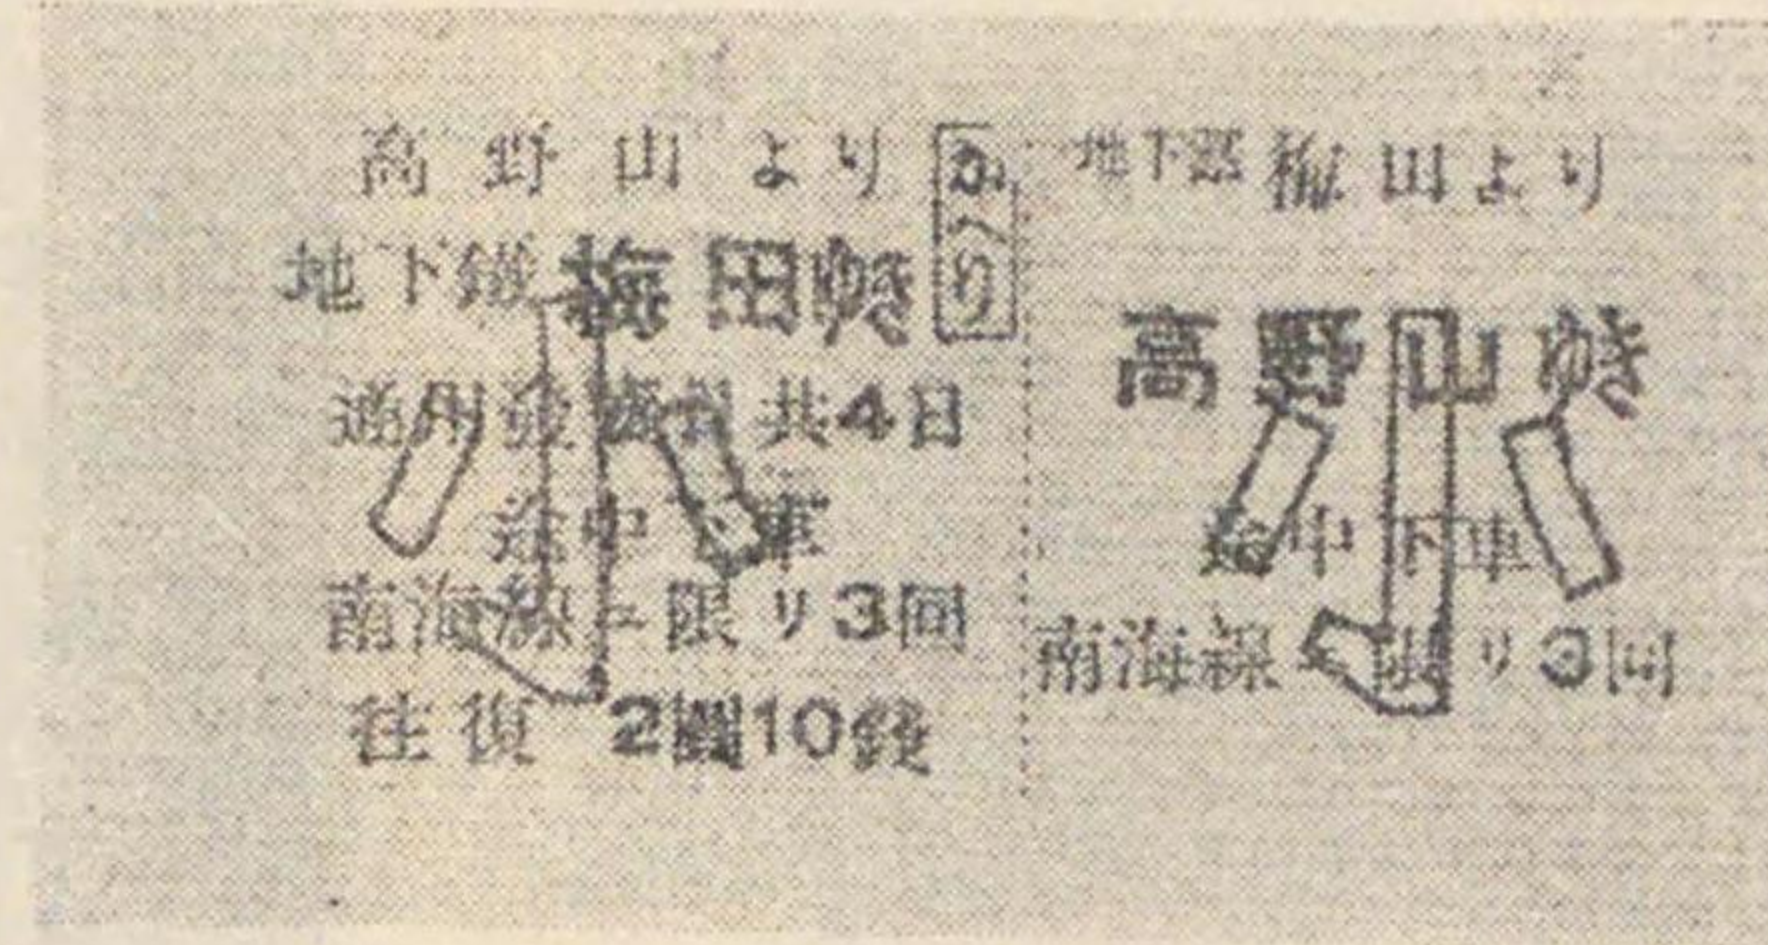 高野山より
地下鐵 梅田ゆき
通用發 共4日
途中下車
南海線ニ限リ3回
往復 2圓10錢
小
かへり
地下鐵 梅田より
高野山ゆき
途中下車
南海線ニ限リ3回
小